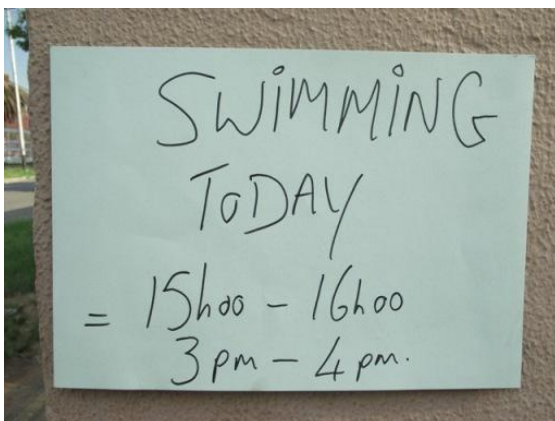 SWiMMiNG
ToDAY
= 15h00 - 16h00
3 pm - 4 pm.